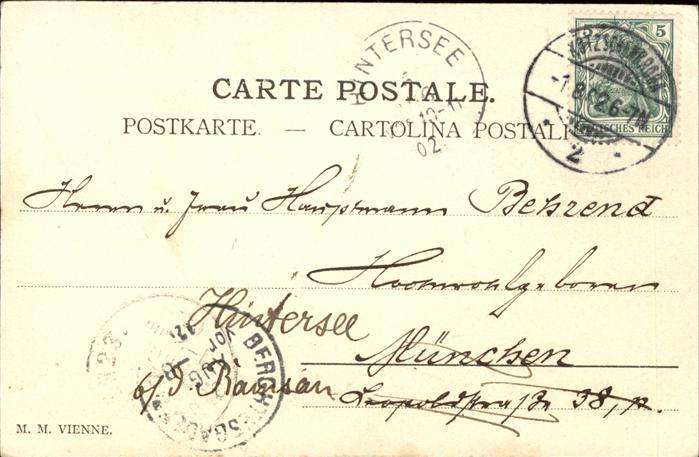 HINTERSEE
02
5
KÖTZSCHENBRODA
-1.8.02.6-7N
* 2 *
DEUTSCHES REICH
CARTE POSTALE.
POSTKARTE. — CARTOLINA POSTALE
Herrn u. Frau Hauptmann Behrend
Hochwohlgeboren
Hintersee
München
b/d. Ramsau
Leopoldstraße 38, p.
BERCHTESGADEN
VOR
M. M. VIENNE.